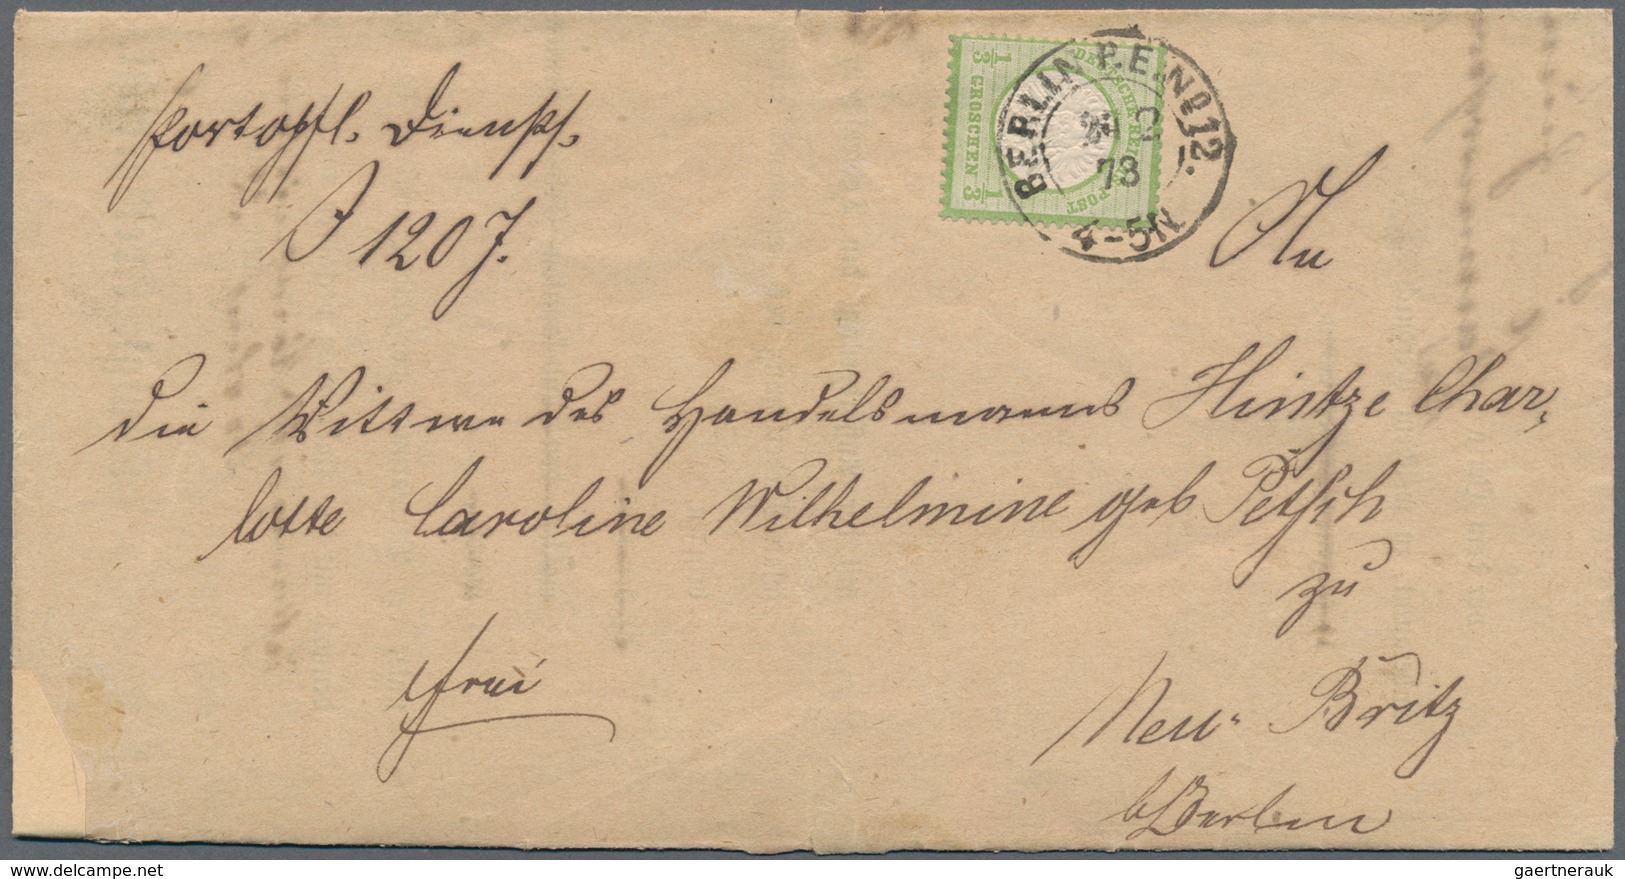 Portopfl. Diensts.
J 120 J.
⅓ GROSCHEN ⅓
DEUTSCHE REICHS POST
BERLIN P.E.No12.
2
73
4-5N
An
die Wittwe des Handelsmanns Hintze Char-
lotte Caroline Wilhelmine geb Petsch
zu
frei
Neu-Britz
b/Berlin
gaertnerauk